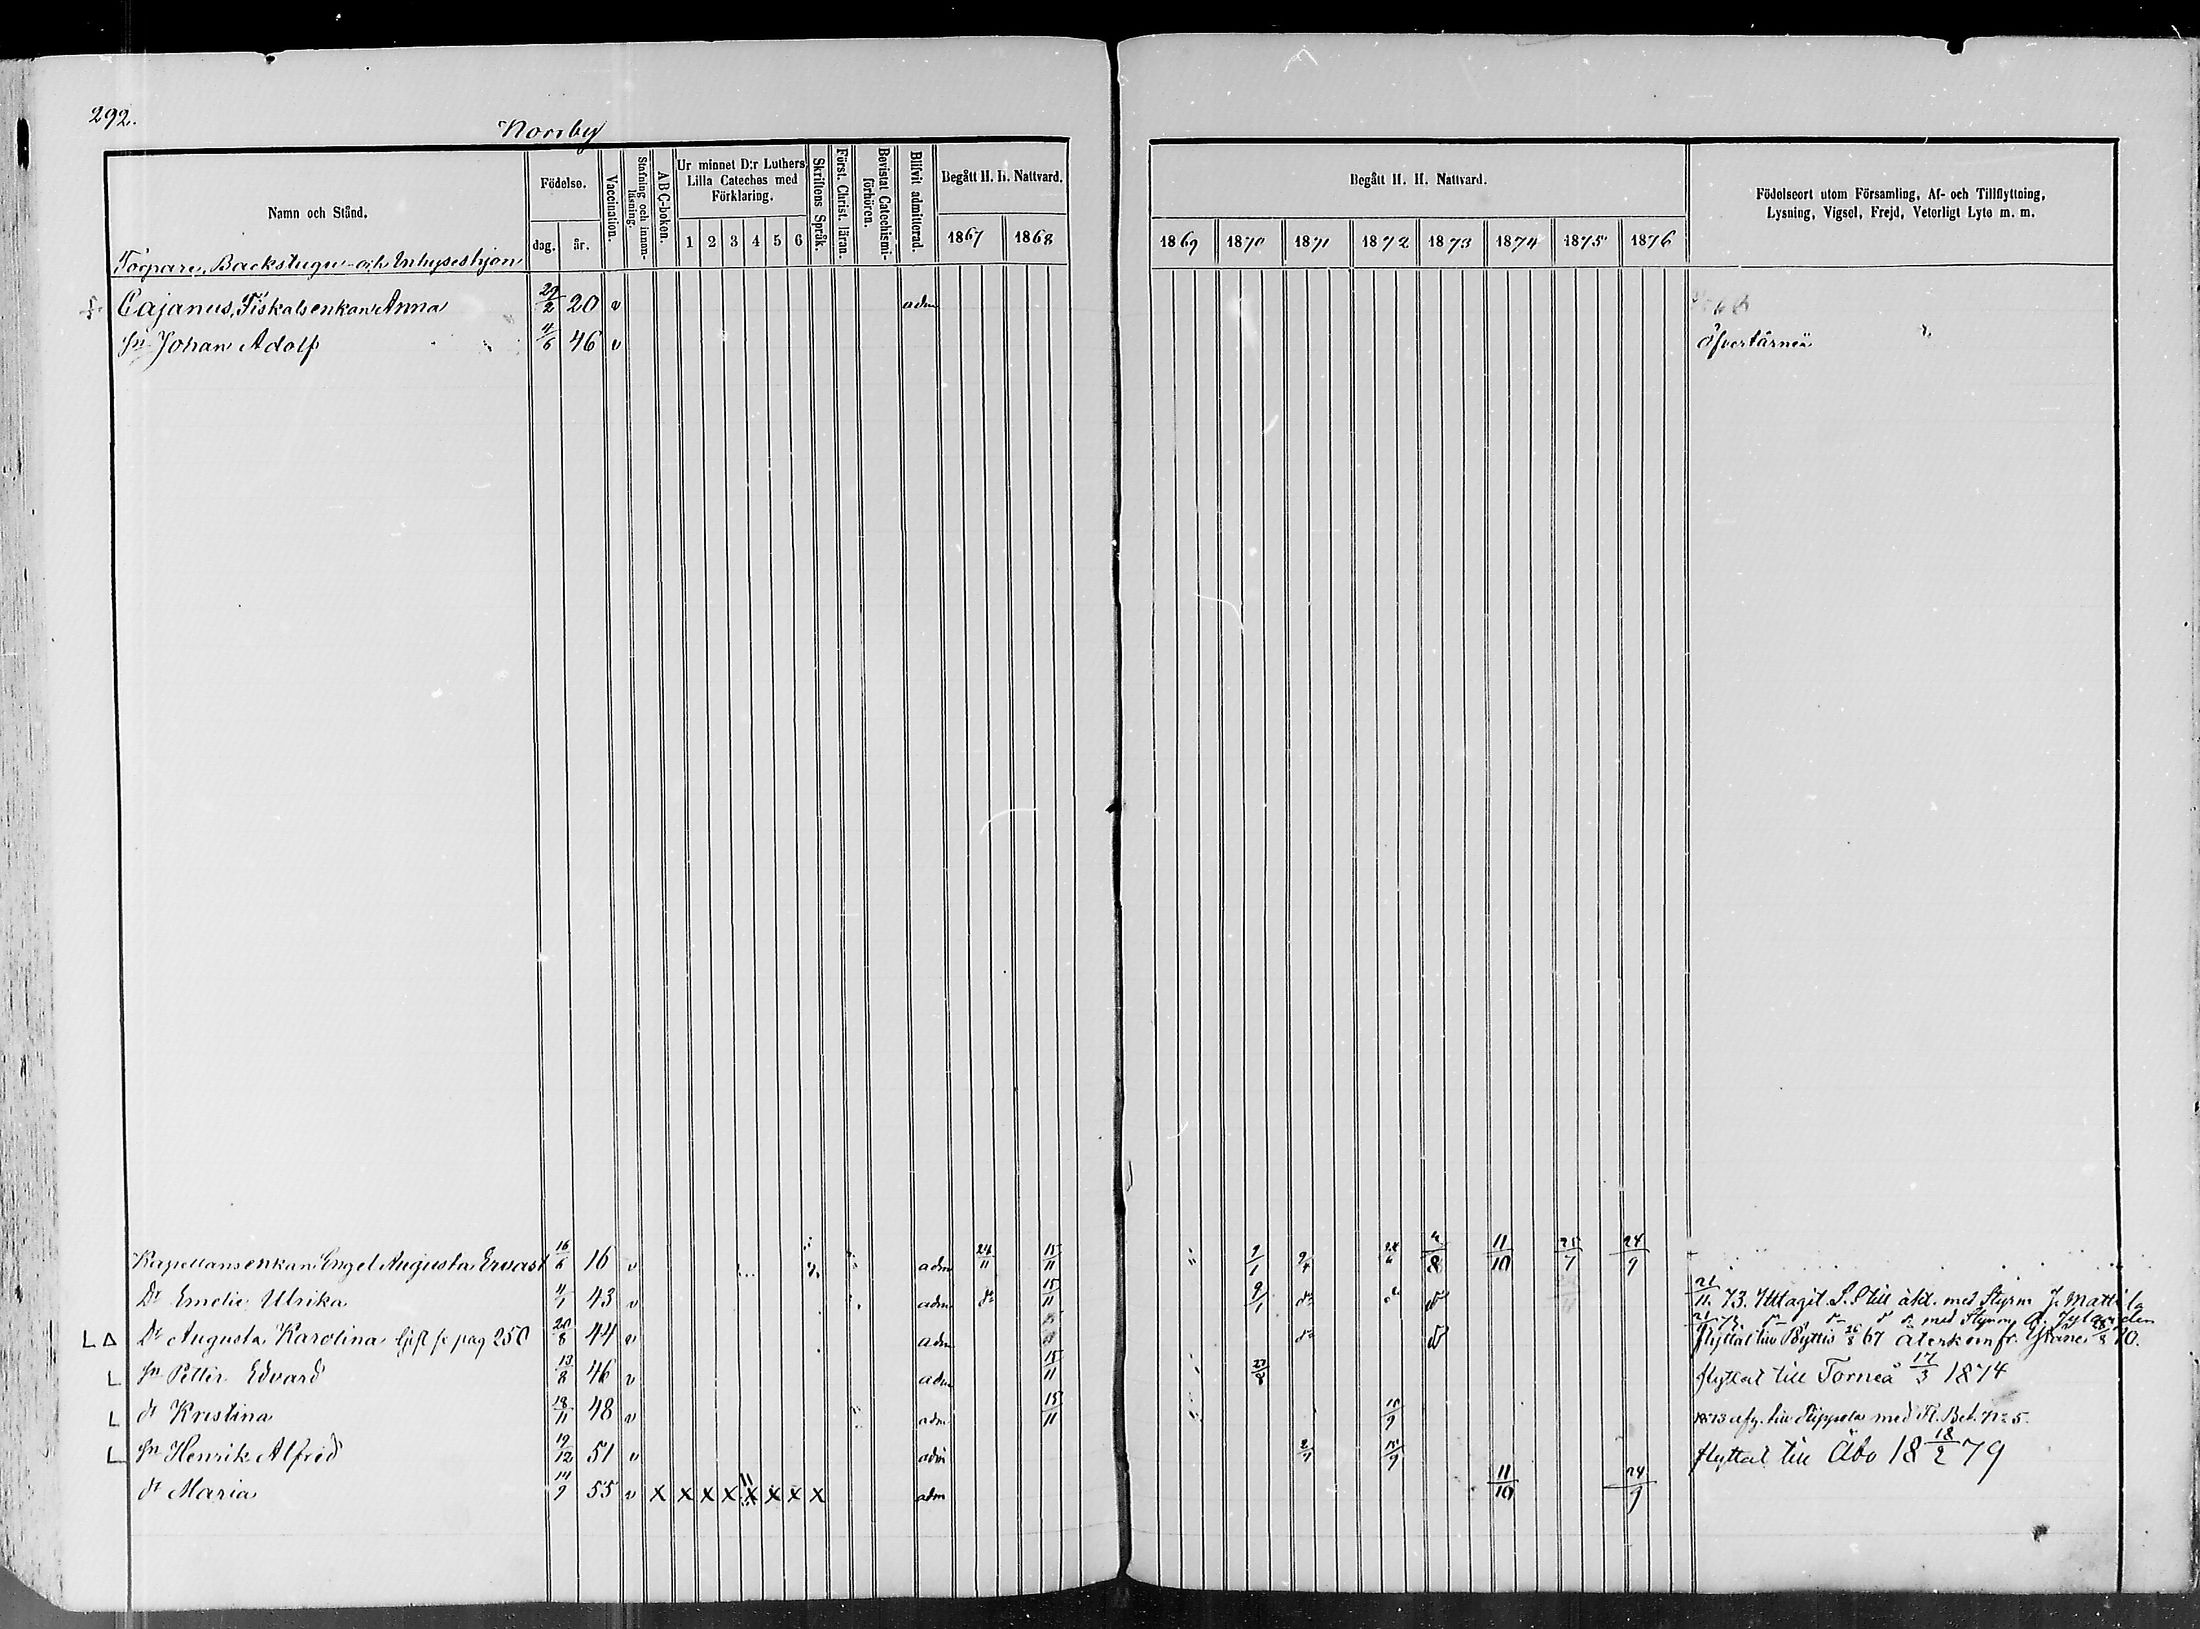 292.
Norrby
Namn och Stånd.
Födelse.
dag.
år.
Vaccination.
Stafning och innan-läsning.
ABC-boken.
Ur minnet D:r Luthers Lilla Cateches med Förklaring.
1 2 3 4 5 6
Skriftens Språk.
Först. Christ. läran.
Bevistat Catechismi-förhören.
Blifvit admitterad.
Begått H. H. Nattvard.
1867 1868
Begått H. H. Nattvard.
1869 1870 1871 1872 1873 1874 1875 1876
Födelseort utom Församling, Af- och Tillflyttning,
Lysning, Vigsel, Frejd, Veterligt Lyte m. m.
Backstugu- och Inhyseshjon
Cajanus, Fiskalsenkan Anna 29/2 20 v adm
Sn Johan Adolf 4/6 46 v Öfvertårneå
Kapellansenkan Engel Augusta Ervast 16/6 16 v adm 24/11 15/11 9/1 9/4 24/6 11/10 25/7 24/9
Dr Emelie Ulrika 4/1 43 v adm do 15/11 9/1 do 21/11 73. Uttagit till äkt. med Styrm J. Mattila
Dr Augusta Karolina gift se pag 250 20/8 44 v adm do flyttat till Pyttis 26/8 67 återkom fr. 70.
Sn Petter Edvard 13/8 46 v adm 15/11 27/8 flyttat till Torneå 17/3 1874
dr Kristina 18/11 48 v adm 15/11 15/9 med Fl. Bet. No 5.
Sn Henrik Alfred 19/12 51 v adm 15/9 flyttat till Åbo 18 18/2 79
dr Maria 14/9 55 v X X X X X X X X adm 11/10 24/9